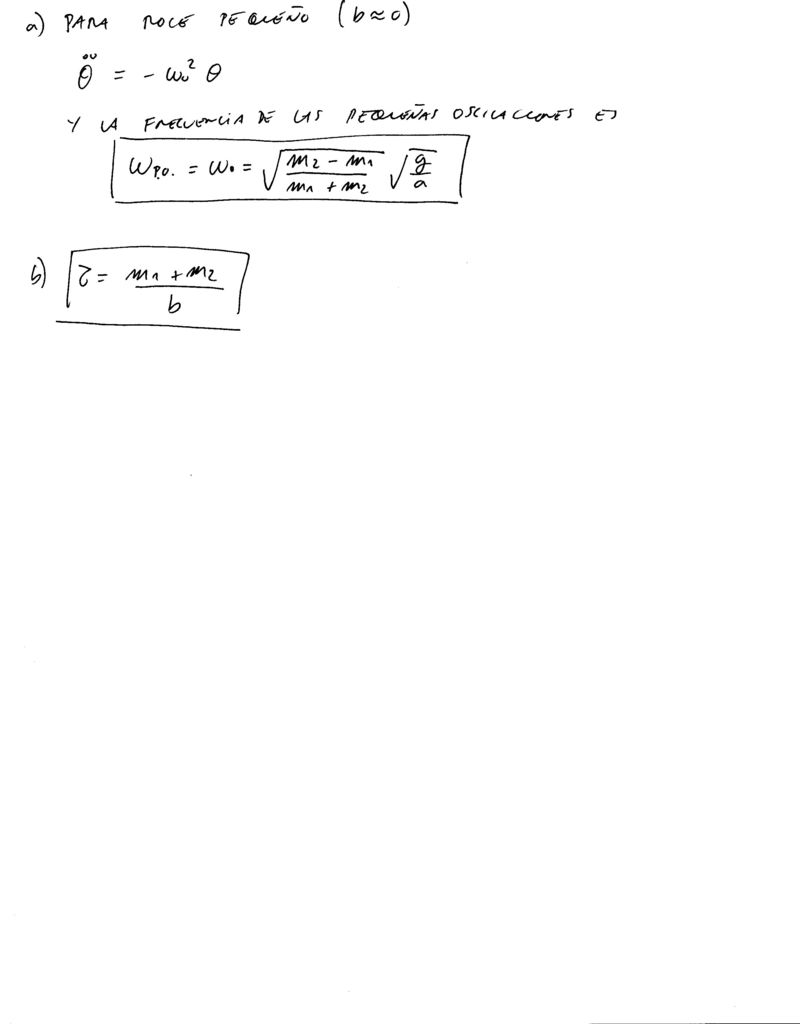 a) PARA ROCE PEQUEÑO (b≈0)
θ̈ = - ω₀² θ
Y LA FRECUENCIA DE LAS PEQUEÑAS OSCILACIONES ES
ω_P.O. = ω₀ = √((m₂ - m₁)/(m₁ + m₂)) √(g/a)
b) τ = (m₁ + m₂)/b